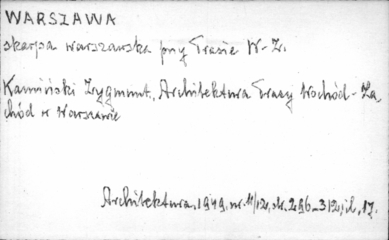 WARSZAWA
skarpa warszawska przy Trasie W-Z.
Kamiński Zygmunt, Architektura Trasy Wschód-Za
chód w Warszawie
Architektura, 1949, nr. 11/12, str. 296-312, il. 17.